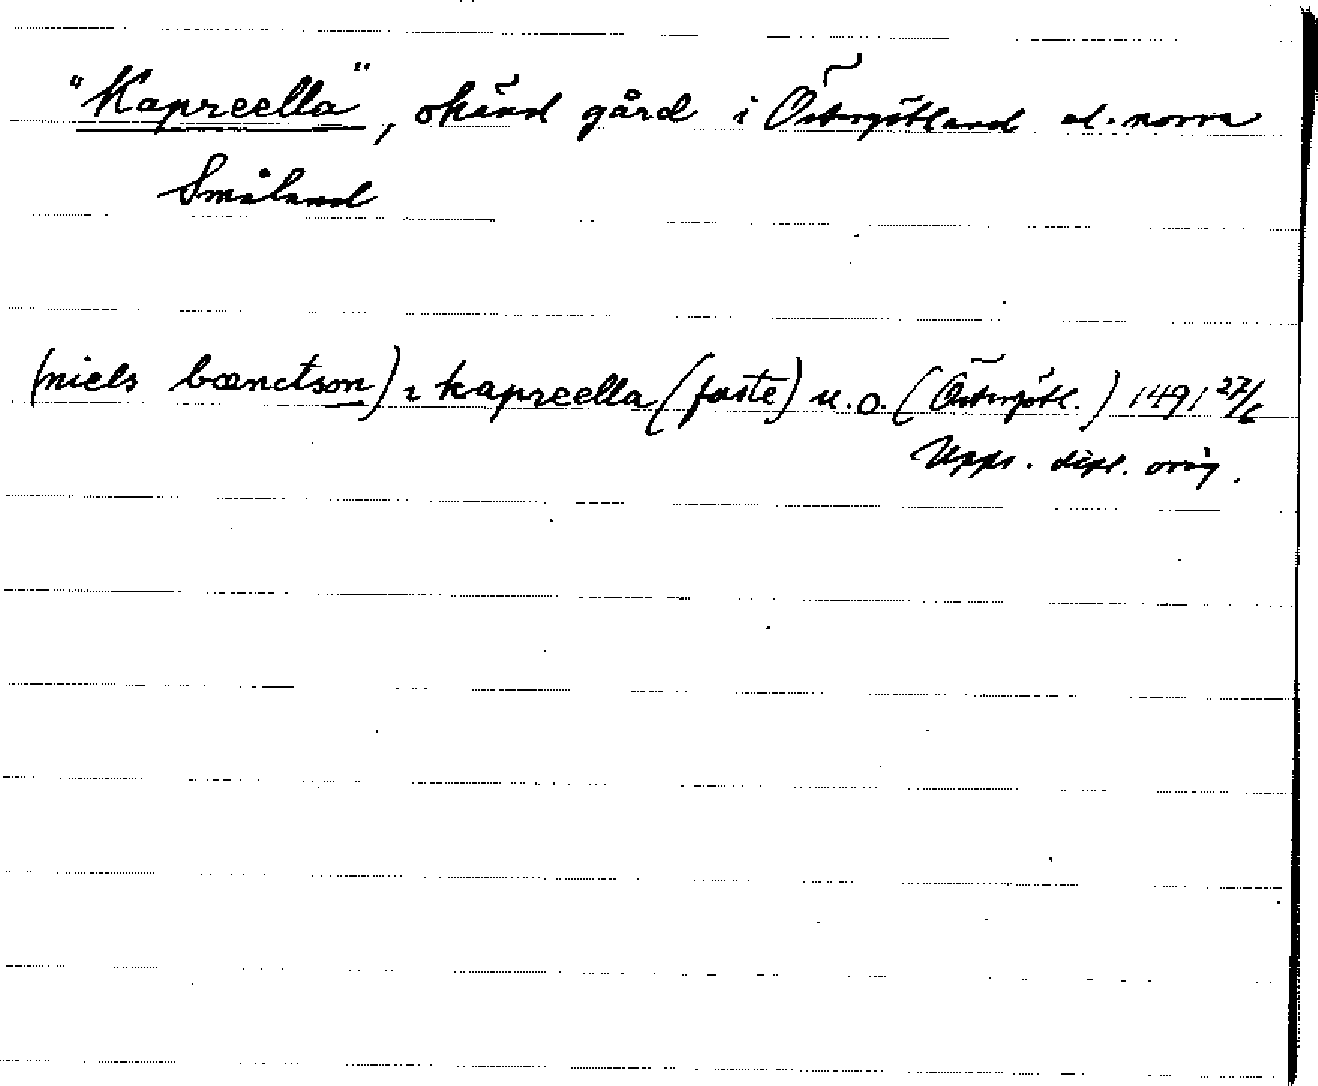 "Kapreella", okänd gård i Östergötland el. norra
Småland
(niels bænctson) i kapreella (faste) u.o. (Östergötl.) 1491 27/6
Upps. dipl. orig.